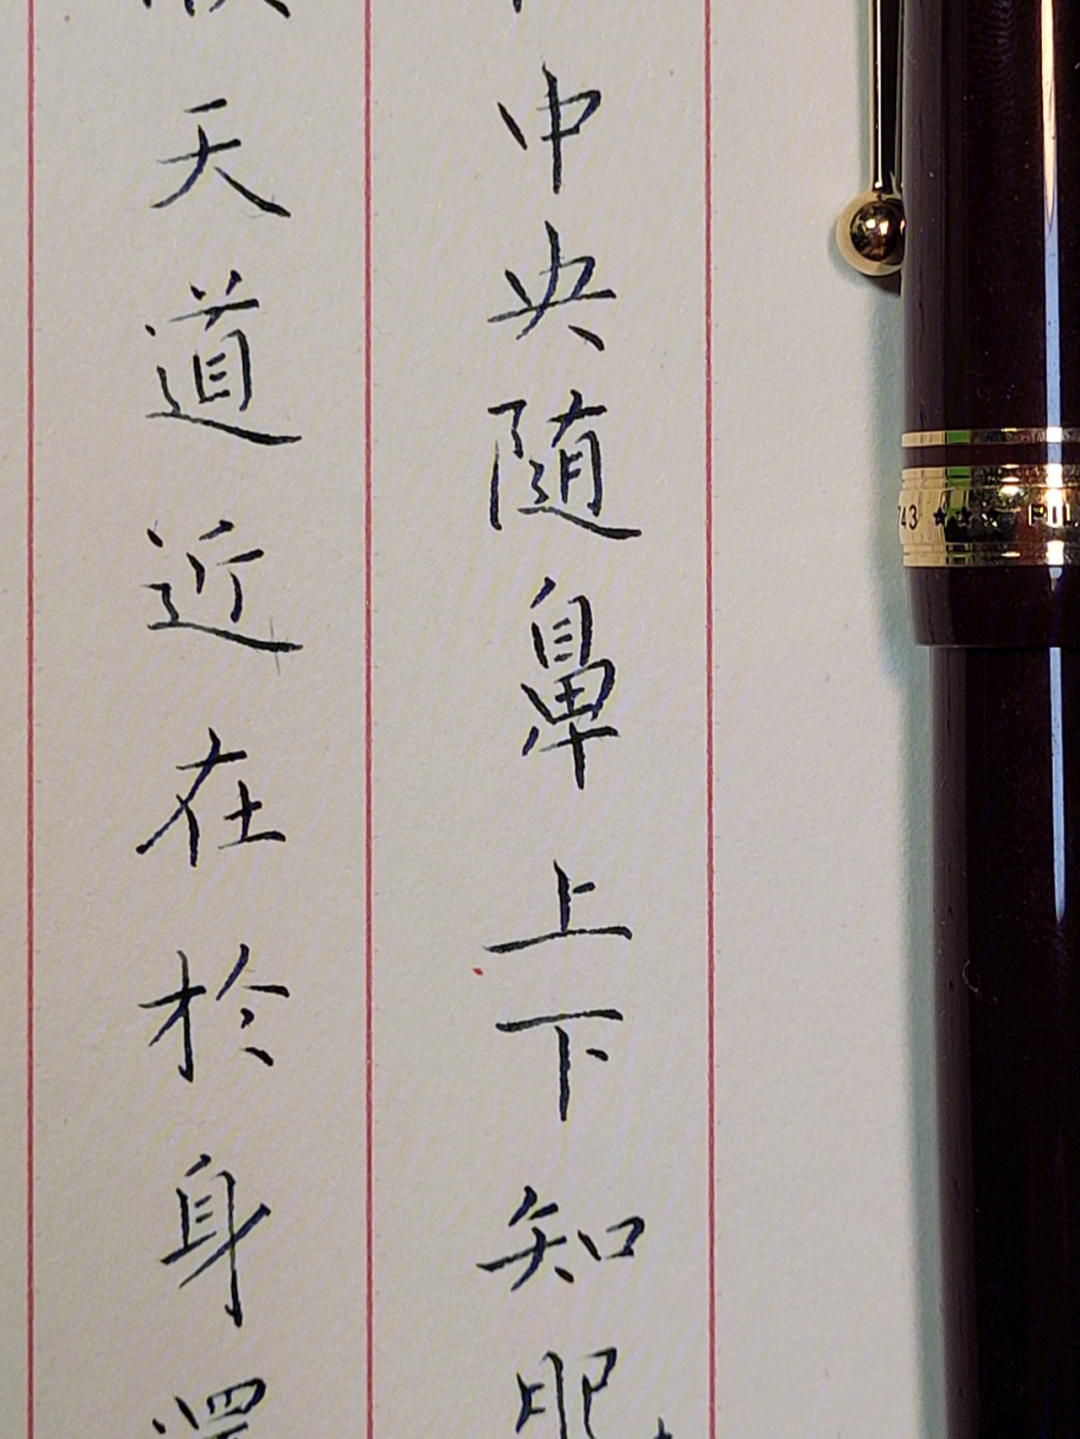 中央随鼻上下知肥
天道近在於身
743 ★★★ PIL